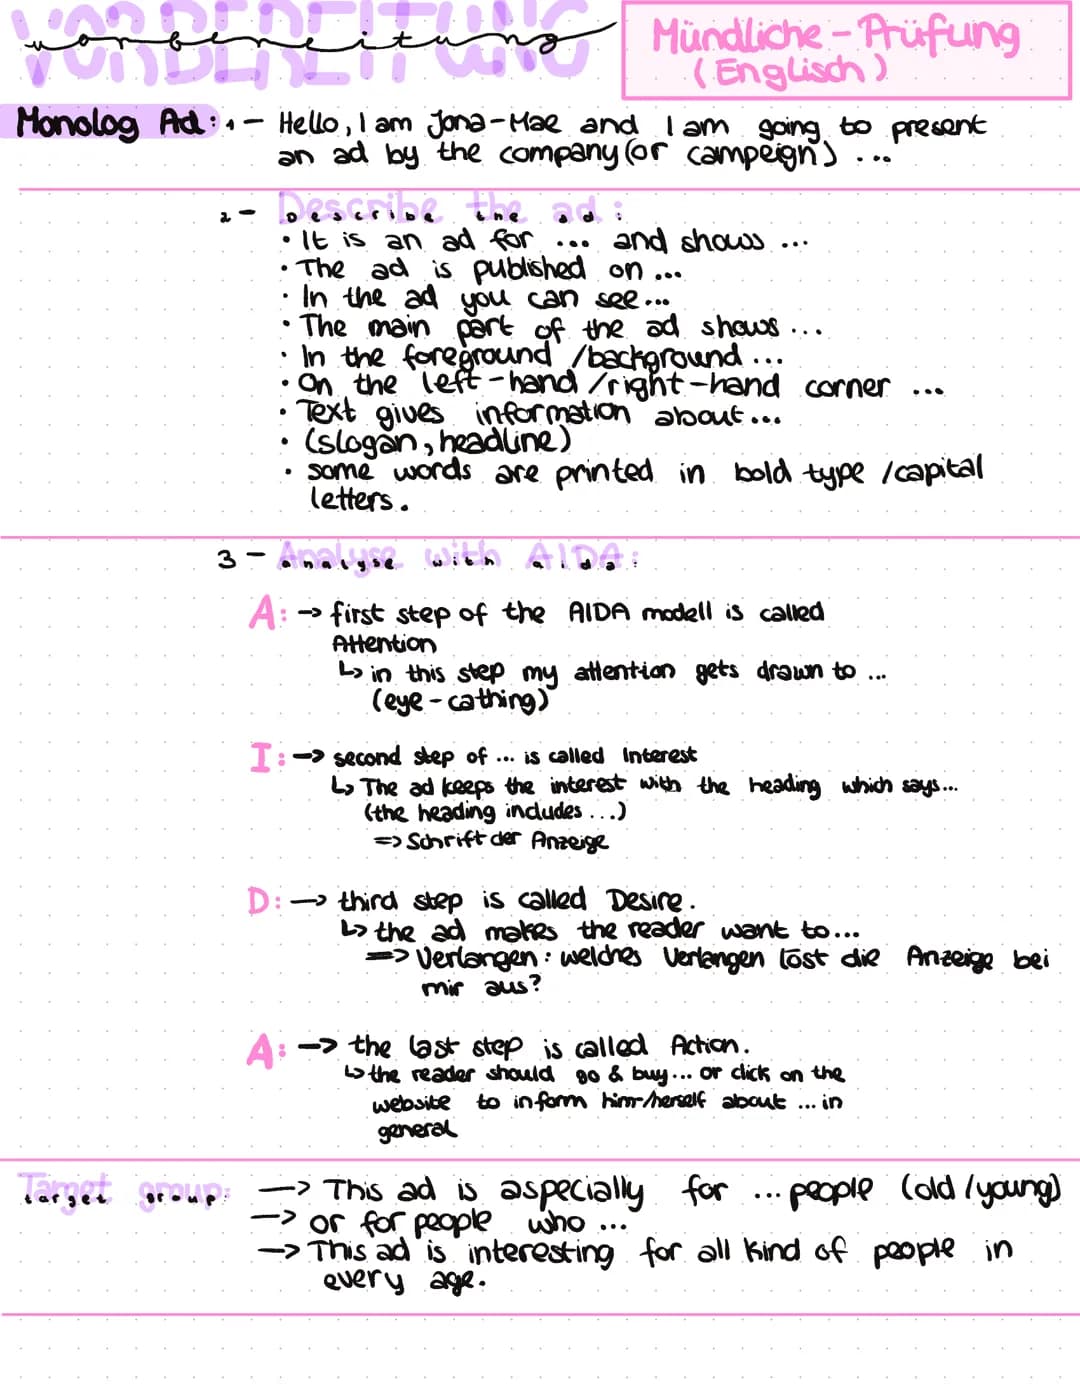 VORBEREITUNG
vorbereitung
Mündliche-Prüfung
(Englisch)
Monolog Ad: 1- Hello, I am Jona-Mae and I am going to present
an ad by the company (or campeign) ...
2- Describe the ad:
describe the ad:
• It is an ad for ... and shows ...
• The ad is published on ...
• In the ad you can see...
• The main part of the ad shows ...
• In the foreground /background ...
• On the left-hand /right-hand corner ...
• Text gives information about...
• (slogan, headline)
• some words are printed in bold type /capital
letters.
3- Analyse with AIDA:
analyse with aida:
A: → first step of the AIDA modell is called
Attention
↳ in this step my attention gets drawn to ...
(eye-cathing)
I: → second step of ... is called Interest
↳ The ad keeps the interest with the heading which says...
(the heading includes ...)
=> Schrift der Anzeige
D: → third step is called Desire.
↳ the ad makes the reader want to...
=> Verlangen: welches Verlangen löst die Anzeige bei
mir aus?
A: → the last step is called Action.
↳ the reader should go & buy... or click on the
website to inform him-/herself about ... in
general
Target group: → This ad is aspecially for ... people (old /young)
target group:
→ or for people who ...
→ This ad is interesting for all kind of people in
every age.